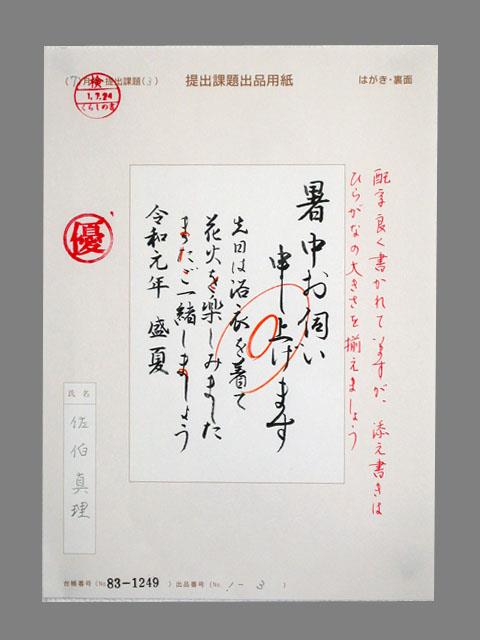 (7)月・提出課題(3)
提出課題出品用紙
はがき・裏面
検
1.7.24
くらしの書
優
配字良く書かれていますが、添え書きは
ひらがなの大きさを揃えましょう
暑中お伺い
申し上げます
先日は浴衣を着て
花火を楽しみました
またご一緒しましょう
令和元年 盛夏
氏名
佐伯真理
台帳番号(No.83-1249)出品番号(No.1-3)